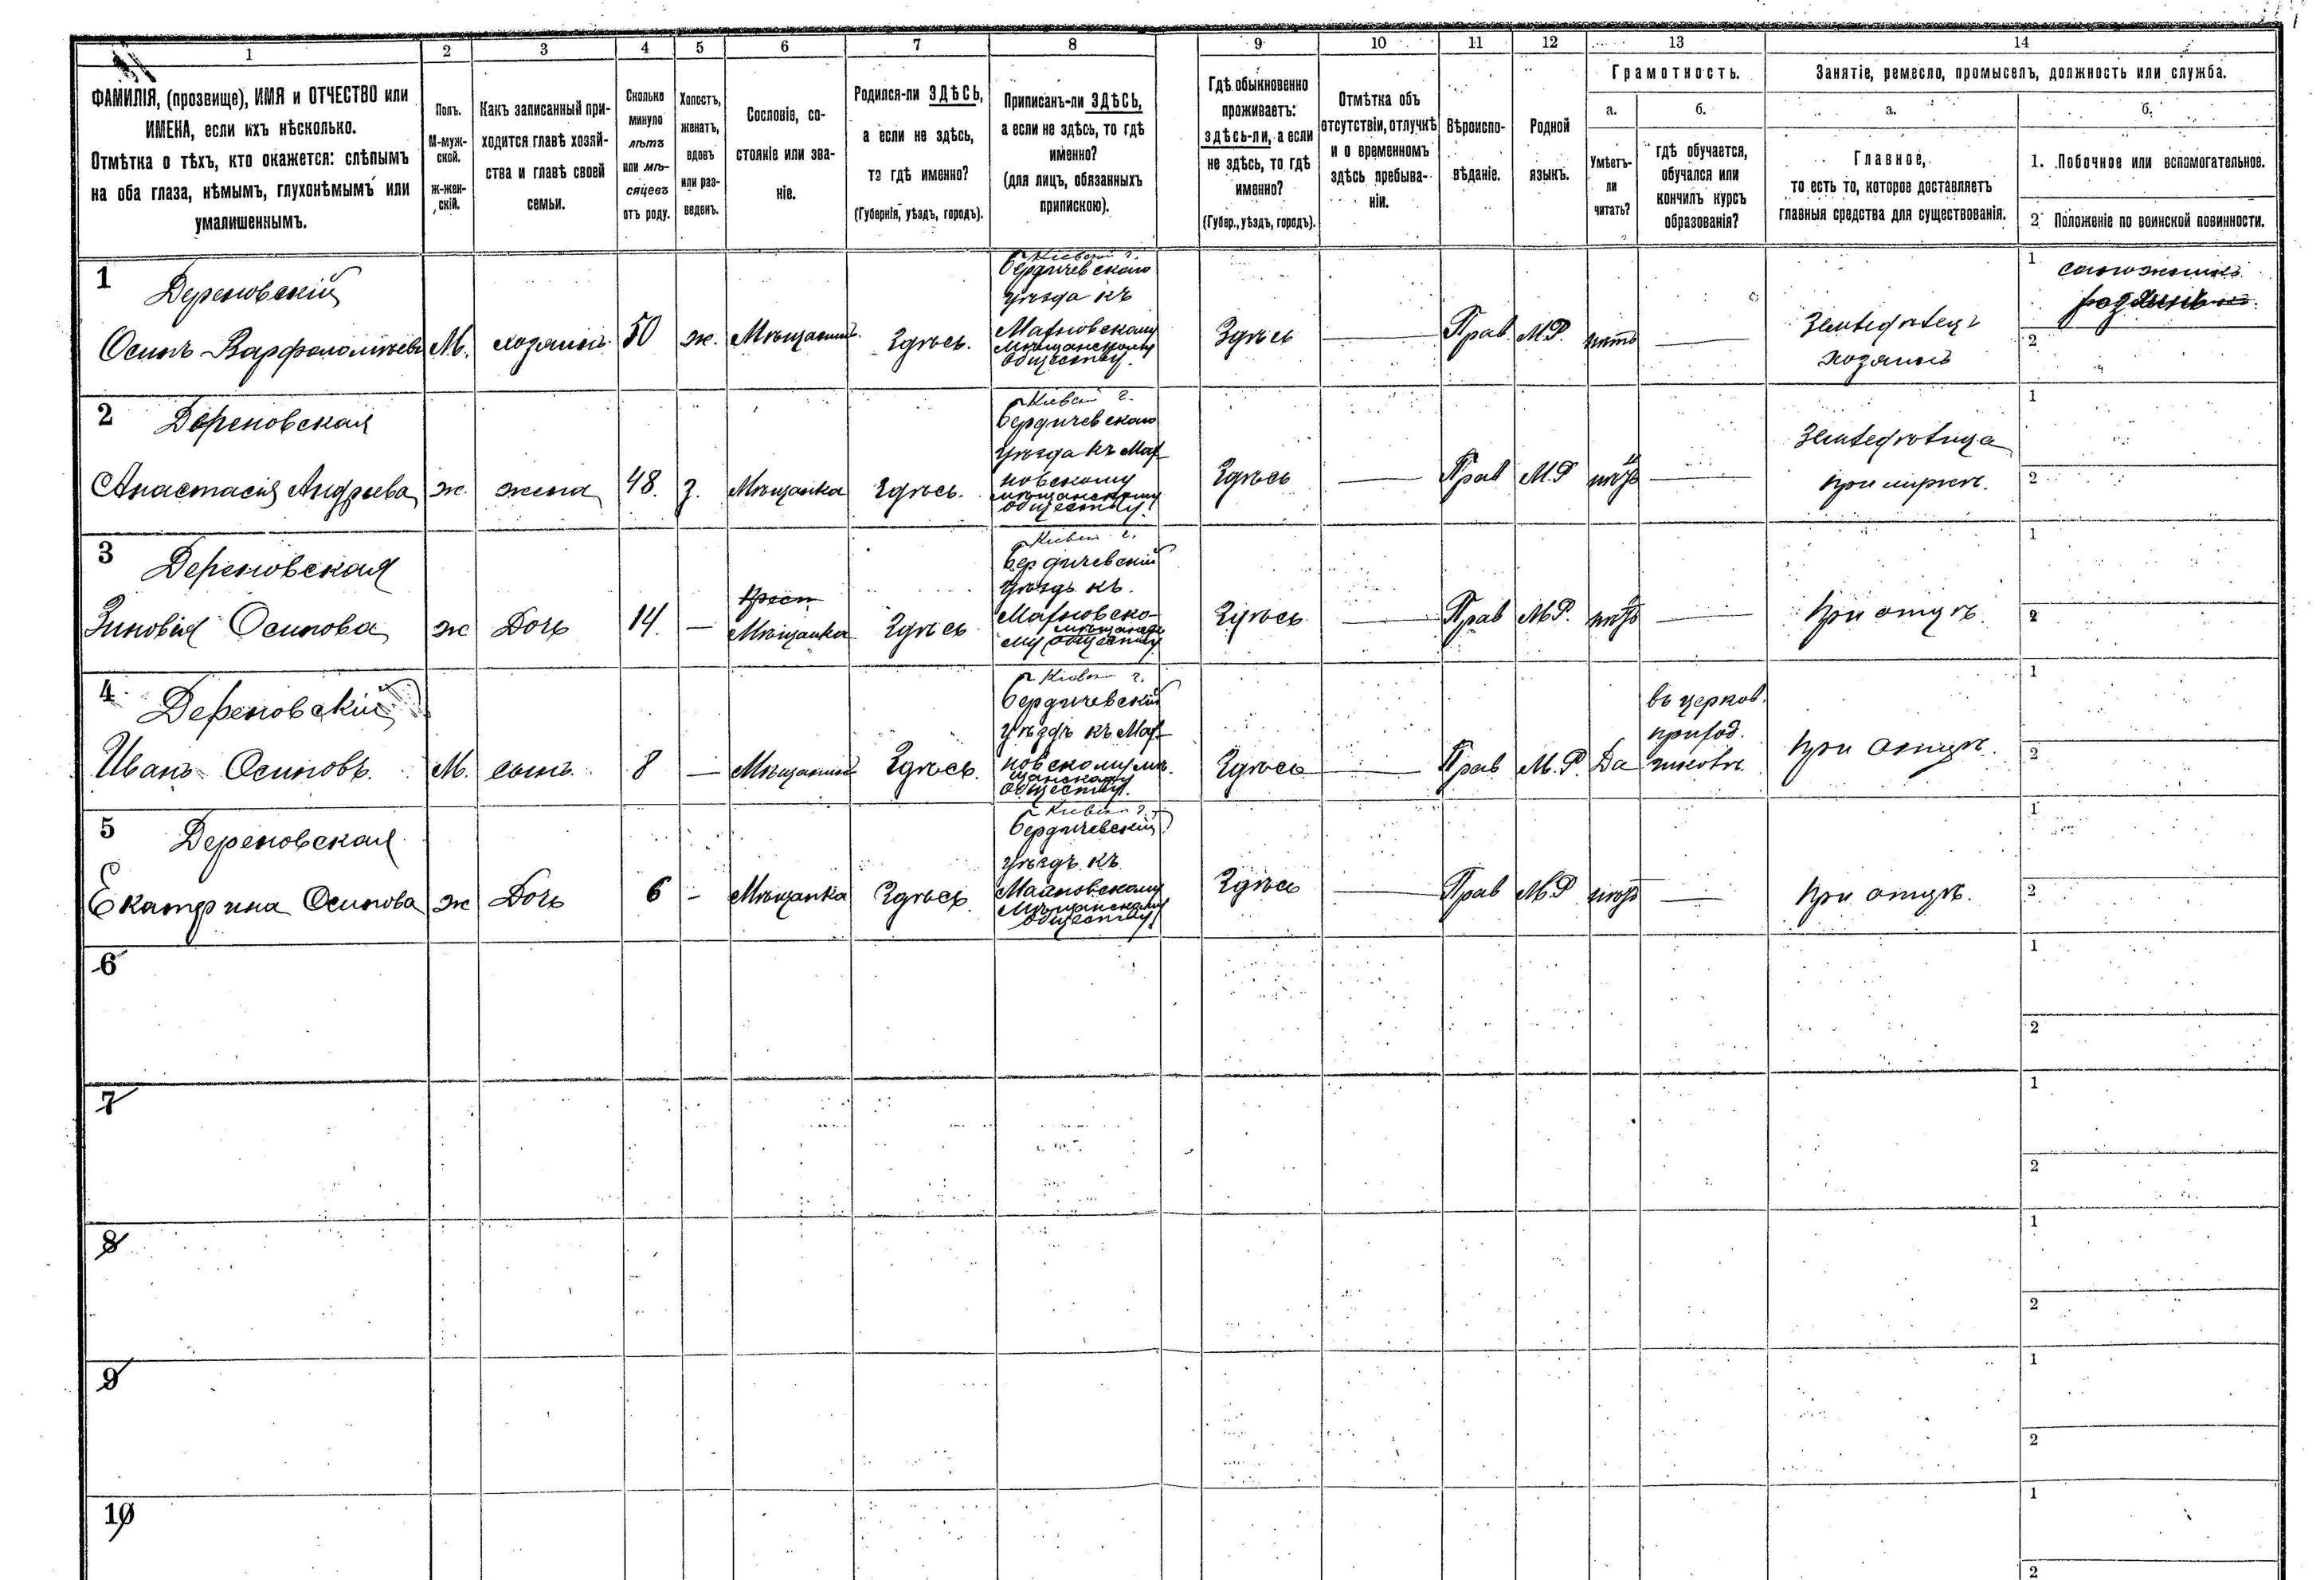 1
2
3
4
5
6
7
8
9
10
11
12
13
14
ФАМИЛІЯ, (прозвище), ИМЯ и ОТЧЕСТВО или
ИМЕНА, если ихъ нѣсколько.
Отмѣтка о тѣхъ, кто окажется: слѣпымъ
на оба глаза, нѣмымъ, глухонѣмымъ или
умалишеннымъ.
Полъ.
М-муж-
ской.
ж-жен-
скій.
Какъ записанный при-
ходится главѣ хозяй-
ства и главѣ своей
семьи.
Сколько
минуло
лѣтъ
или мѣ-
сяцевъ
отъ роду.
Холостъ,
женатъ,
вдовъ
или раз-
веденъ.
Сословіе, со-
стояніе или зва-
ніе.
Родился-ли ЗДѢСЬ,
а если не здѣсь,
то гдѣ именно?
(Губернія, уѣздъ, городъ).
Приписанъ-ли ЗДѢСЬ,
а если не здѣсь, то гдѣ
именно?
(для лицъ, обязанныхъ
припискою).
Гдѣ обыкновенно
проживаетъ:
здѣсь-ли, а если
не здѣсь, то гдѣ
именно?
(Губер., уѣздъ, городъ).
Отмѣтка объ
отсутствіи, отлучкѣ
и о временномъ
здѣсь пребыва-
ніи.
Вѣроиспо-
вѣданіе.
Родной
языкъ.
Грамотность.
а.
Умѣетъ-
ли
читать?
б.
гдѣ обучается,
обучался или
кончилъ курсъ
образованія?
Занятіе, ремесло, промыселъ, должность или служба.
а.
Главное,
то есть то, которое доставляетъ
главныя средства для существованія.
б.
1. Побочное или вспомогательное.
2 Положеніе по воинской повинности.
1
Дереновскій
Осипъ Варфоломѣевъ
М.
хозяинъ
50
ж.
Мѣщанинъ
Здѣсь.
Кіевской г.
Бердичевскаго
уѣзда къ
Махновскому
мѣщанскому
обществу.
Здѣсь
Прав.
М.Р.
нѣтъ
Земледѣлецъ
хозяинъ
1
сапожникъ
2
2
Дереновская
Анастасія Андреева
ж.
жена
48.
з.
Мѣщанка
Здѣсь.
Кіевской г.
Бердичевскаго
уѣзда къ Мах-
новскому
мѣщанскому
обществу.
Здѣсь
Прав
М.Р
нѣтъ
Земледѣлица
при мужѣ.
1
2
3
Дереновская
Зиновія Осипова
ж
Дочь
14.
Крест
Мѣщанка
Здѣсь
Кіевской г.
Бердичевскій
уѣздъ къ
Махновско-
му мѣщанск
обществу
Здѣсь
Прав
М.Р.
нѣтъ
при отцѣ.
1
2
4
Дереновскій
Иванъ Осиповъ.
М.
сынъ
8
Мѣщанинъ
Здѣсь.
Кіевской г.
Бердичевскій
уѣздъ къ Мах-
новскому мѣ-
щанскому
обществу.
Здѣсь
Прав
М.Р.
Да
въ церков.
приход.
школѣ.
при отцѣ.
1
2
5
Дереновская
Екатерина Осипова
ж
Дочь
6
Мѣщанка
Здѣсь
Кіевской г.
Бердичевскій
уѣздъ къ
Махновскому
Мѣщанскому
обществу
Здѣсь
Прав
М.Р
нѣтъ
при отцѣ.
1
2
6
1
2
7
1
2
8
1
2
9
1
2
10
1
2